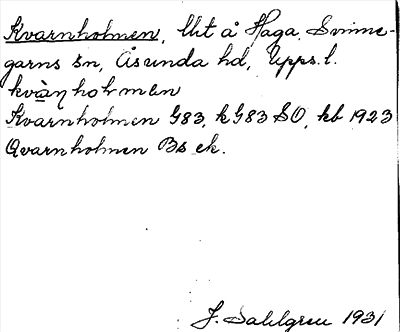 Kvarnholmen, lht å Haga, Svinne-
garns sn, Åsunda hd, Upps. l.
kvàṇhoḷmen
Kvarnholmen G83, kG83 SO, kb 1923
Qvarnholmen Bs ek.
J. Sahlgren 1931